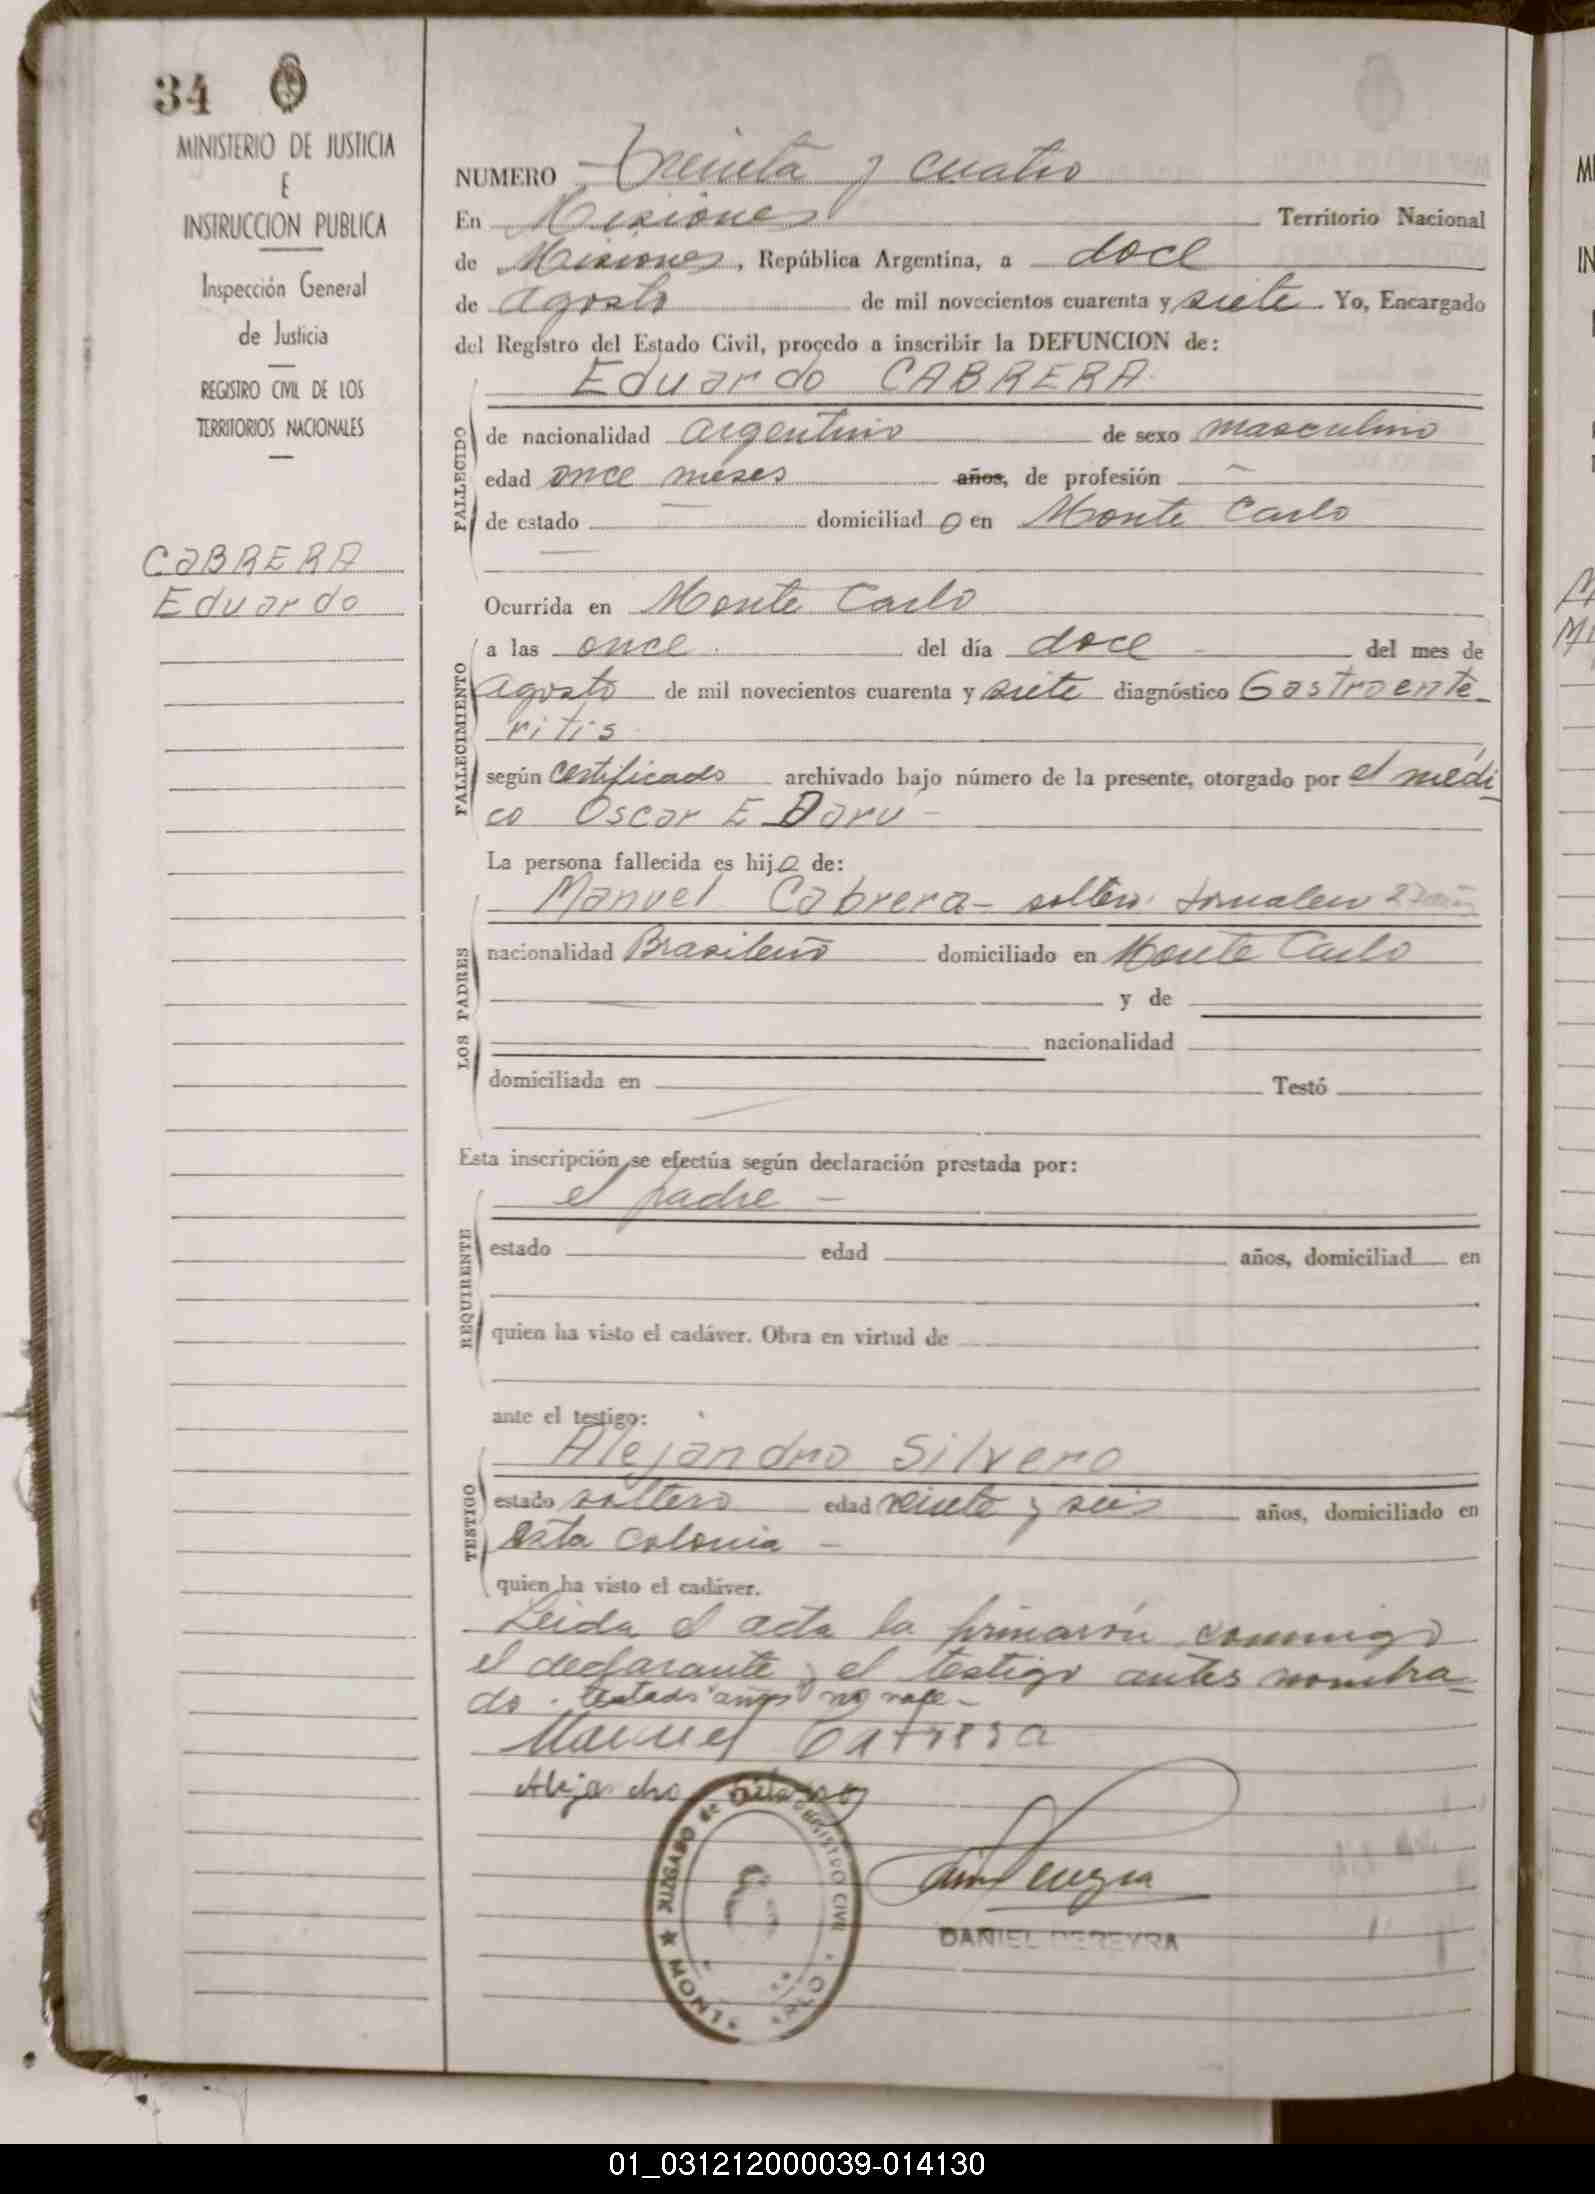 34
MINISTERIO DE JUSTICIA
E
INSTRUCCION PUBLICA
Inspección General
de Justicia
REGISTRO CIVIL DE LOS
TERRITORIOS NACIONALES
CABRERA
Eduardo
NUMERO Treinta y cuatro
En Misiones Territorio Nacional
de Misiones, República Argentina, a doce
de agosto de mil novecientos cuarenta y siete. Yo, Encargado
del Registro del Estado Civil, procedo a inscribir la DEFUNCION de:
Eduardo CABRERA
FALLECIDO
de nacionalidad argentino de sexo masculino
edad once meses años, de profesión
de estado domiciliado en Monte Carlo
Ocurrida en Monte Carlo
FALLECIMIENTO
a las once del día doce del mes de
agosto de mil novecientos cuarenta y siete diagnóstico Gastroente-
ritis
según certificado archivado bajo número de la presente, otorgado por el médi-
co Oscar E Daru -
La persona fallecida es hijo de:
LOS PADRES
Manuel Cabrera - soltero jornalero 27
nacionalidad Brasileño domiciliado en Monte Carlo
y de
nacionalidad
domiciliada en Testó
Esta inscripción se efectúa según declaración prestada por:
REQUIRENTE
el padre -
estado edad años, domiciliad en
quien ha visto el cadáver. Obra en virtud de
ante el testigo:
TESTIGO
Alejandro Silvero
estado soltero edad veinte y seis años, domiciliado en
esta colonia -
quien ha visto el cadáver.
Leida el acta la firmaron conmigo
el declarante y el testigo antes nombra-
do. testado "años" no vale -
Manuel Cabrera
Alejandro Silvero
JUZGADO de REGISTRO CIVIL
MONTE CARLO
DANIEL PEREYRA
01_031212000039-014130